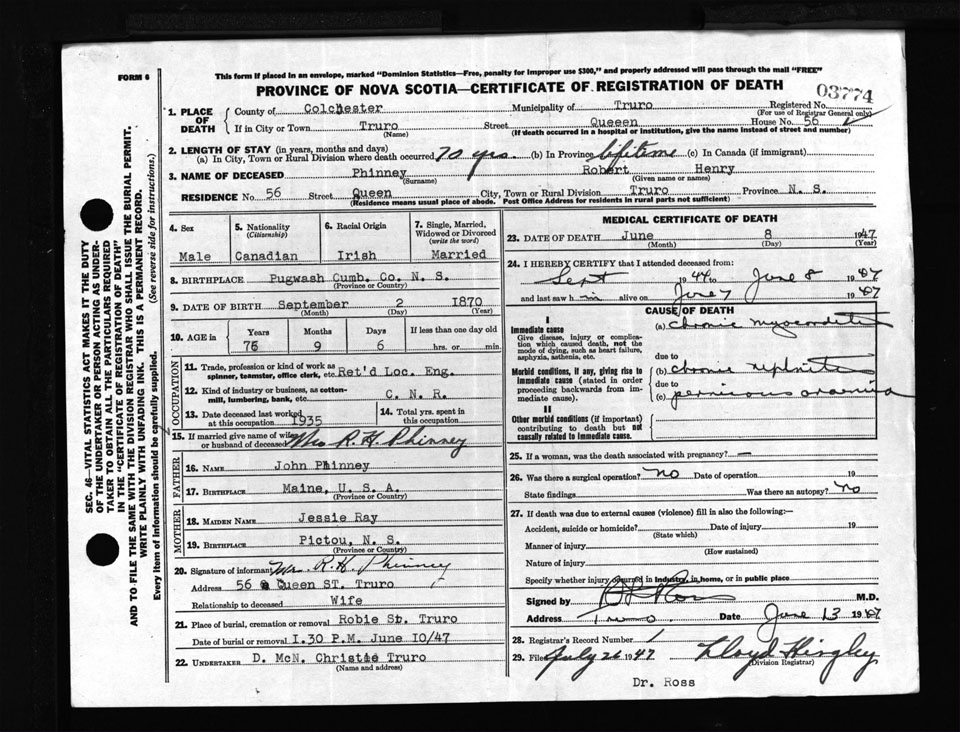 FORM 6
This form if placed in an envelope, marked "Dominion Statistics—Free, penalty for improper use $300," and properly addressed will pass through the mail "FREE"
PROVINCE OF NOVA SCOTIA—CERTIFICATE OF REGISTRATION OF DEATH
03774
1. PLACE OF DEATH County of Colchester Municipality of Truro Registered No. (For use of Registrar General only)
If in City or Town Truro (Name) Street Queeen House No. 56
(If death occurred in a hospital or institution, give the name instead of street and number)
2. LENGTH OF STAY (in years, months and days)
(a) In City, Town or Rural Division where death occurred 70 yrs. (b) In Province lifetime (c) In Canada (if immigrant)
3. NAME OF DECEASED Phinney (Surname) Robert Henry (Given name or names)
RESIDENCE No. 56 Street Queen City, Town or Rural Division Truro Province N. S.
(Residence means usual place of abode. Post Office Address for residents in rural parts not sufficient)
4. Sex Male
5. Nationality (Citizenship) Canadian
6. Racial Origin Irish
7. Single, Married, Widowed or Divorced (write the word) Married
8. BIRTHPLACE Pugwash Cumb. Co. N. S. (Province or Country)
9. DATE OF BIRTH September (Month) 2 (Day) 1870 (Year)
10. AGE in Years 76 Months 9 Days 6 If less than one day old hrs. or min.
OCCUPATION
11. Trade, profession or kind of work as spinner, teamster, office clerk, etc. Ret'd Loc. Eng.
12. Kind of industry or business, as cotton-mill, lumbering, bank, etc. C. N. R.
13. Date deceased last worked at this occupation 1935
14. Total yrs. spent in this occupation
15. If married give name of wife or husband of deceased Mrs R. H. Phinney
FATHER
16. NAME John Phinney
17. BIRTHPLACE Maine, U. S. A. (Province or Country)
MOTHER
18. MAIDEN NAME Jessie Ray
19. BIRTHPLACE Pictou, N. S. (Province or Country)
20. Signature of informant Mrs. R. H. Phinney
Address 56 Queen ST. Truro
Relationship to deceased Wife
21. Place of burial, cremation or removal Robie St. Truro
Date of burial or removal 1.30 P.M. June 10/47
22. UNDERTAKER D. McN. Christie Truro (Name and address)
MEDICAL CERTIFICATE OF DEATH
23. DATE OF DEATH June (Month) 8 (Day) 1947 (Year)
24. I HEREBY CERTIFY that I attended deceased from:
Sept 1944 to June 8 1947
and last saw him alive on June 7 1947
CAUSE OF DEATH
I
Immediate cause
Give disease, injury or complication which caused death, not the mode of dying, such as heart failure, asphyxia, asthenia, etc.
(a) chronic myocarditis
due to
Morbid conditions, if any, giving rise to immediate cause (stated in order proceeding backwards from immediate cause).
(b) chronic nephritis
due to
(c) pernicious anaemia
II
Other morbid conditions (if important) contributing to death but not causally related to immediate cause.
25. If a woman, was the death associated with pregnancy? —
26. Was there a surgical operation? no Date of operation 19
State findings Was there an autopsy? no
27. If death was due to external causes (violence) fill in also the following:—
Accident, suicide or homicide? (State which) Date of injury 19
Manner of injury (How sustained)
Nature of injury
Specify whether injury occurred in industry, in home, or in public place
Signed by Ross M.D.
Address Truro. Date June 13 1947
28. Registrar's Record Number 1
29. Filed July 26 1947 Lloyd Hingley (Division Registrar)
Dr. Ross
SEC. 46—VITAL STATISTICS ACT MAKES IT THE DUTY
OF THE UNDERTAKER OR PERSON ACTING AS UNDER-
TAKER TO OBTAIN ALL THE PARTICULARS REQUIRED
IN THE "CERTIFICATE OF REGISTRATION OF DEATH"
AND TO FILE THE SAME WITH THE DIVISION REGISTRAR WHO SHALL ISSUE THE BURIAL PERMIT.
WRITE PLAINLY WITH UNFADING INK. THIS IS A PERMANENT RECORD.
Every item of information should be carefully supplied. (See reverse side for instructions.)